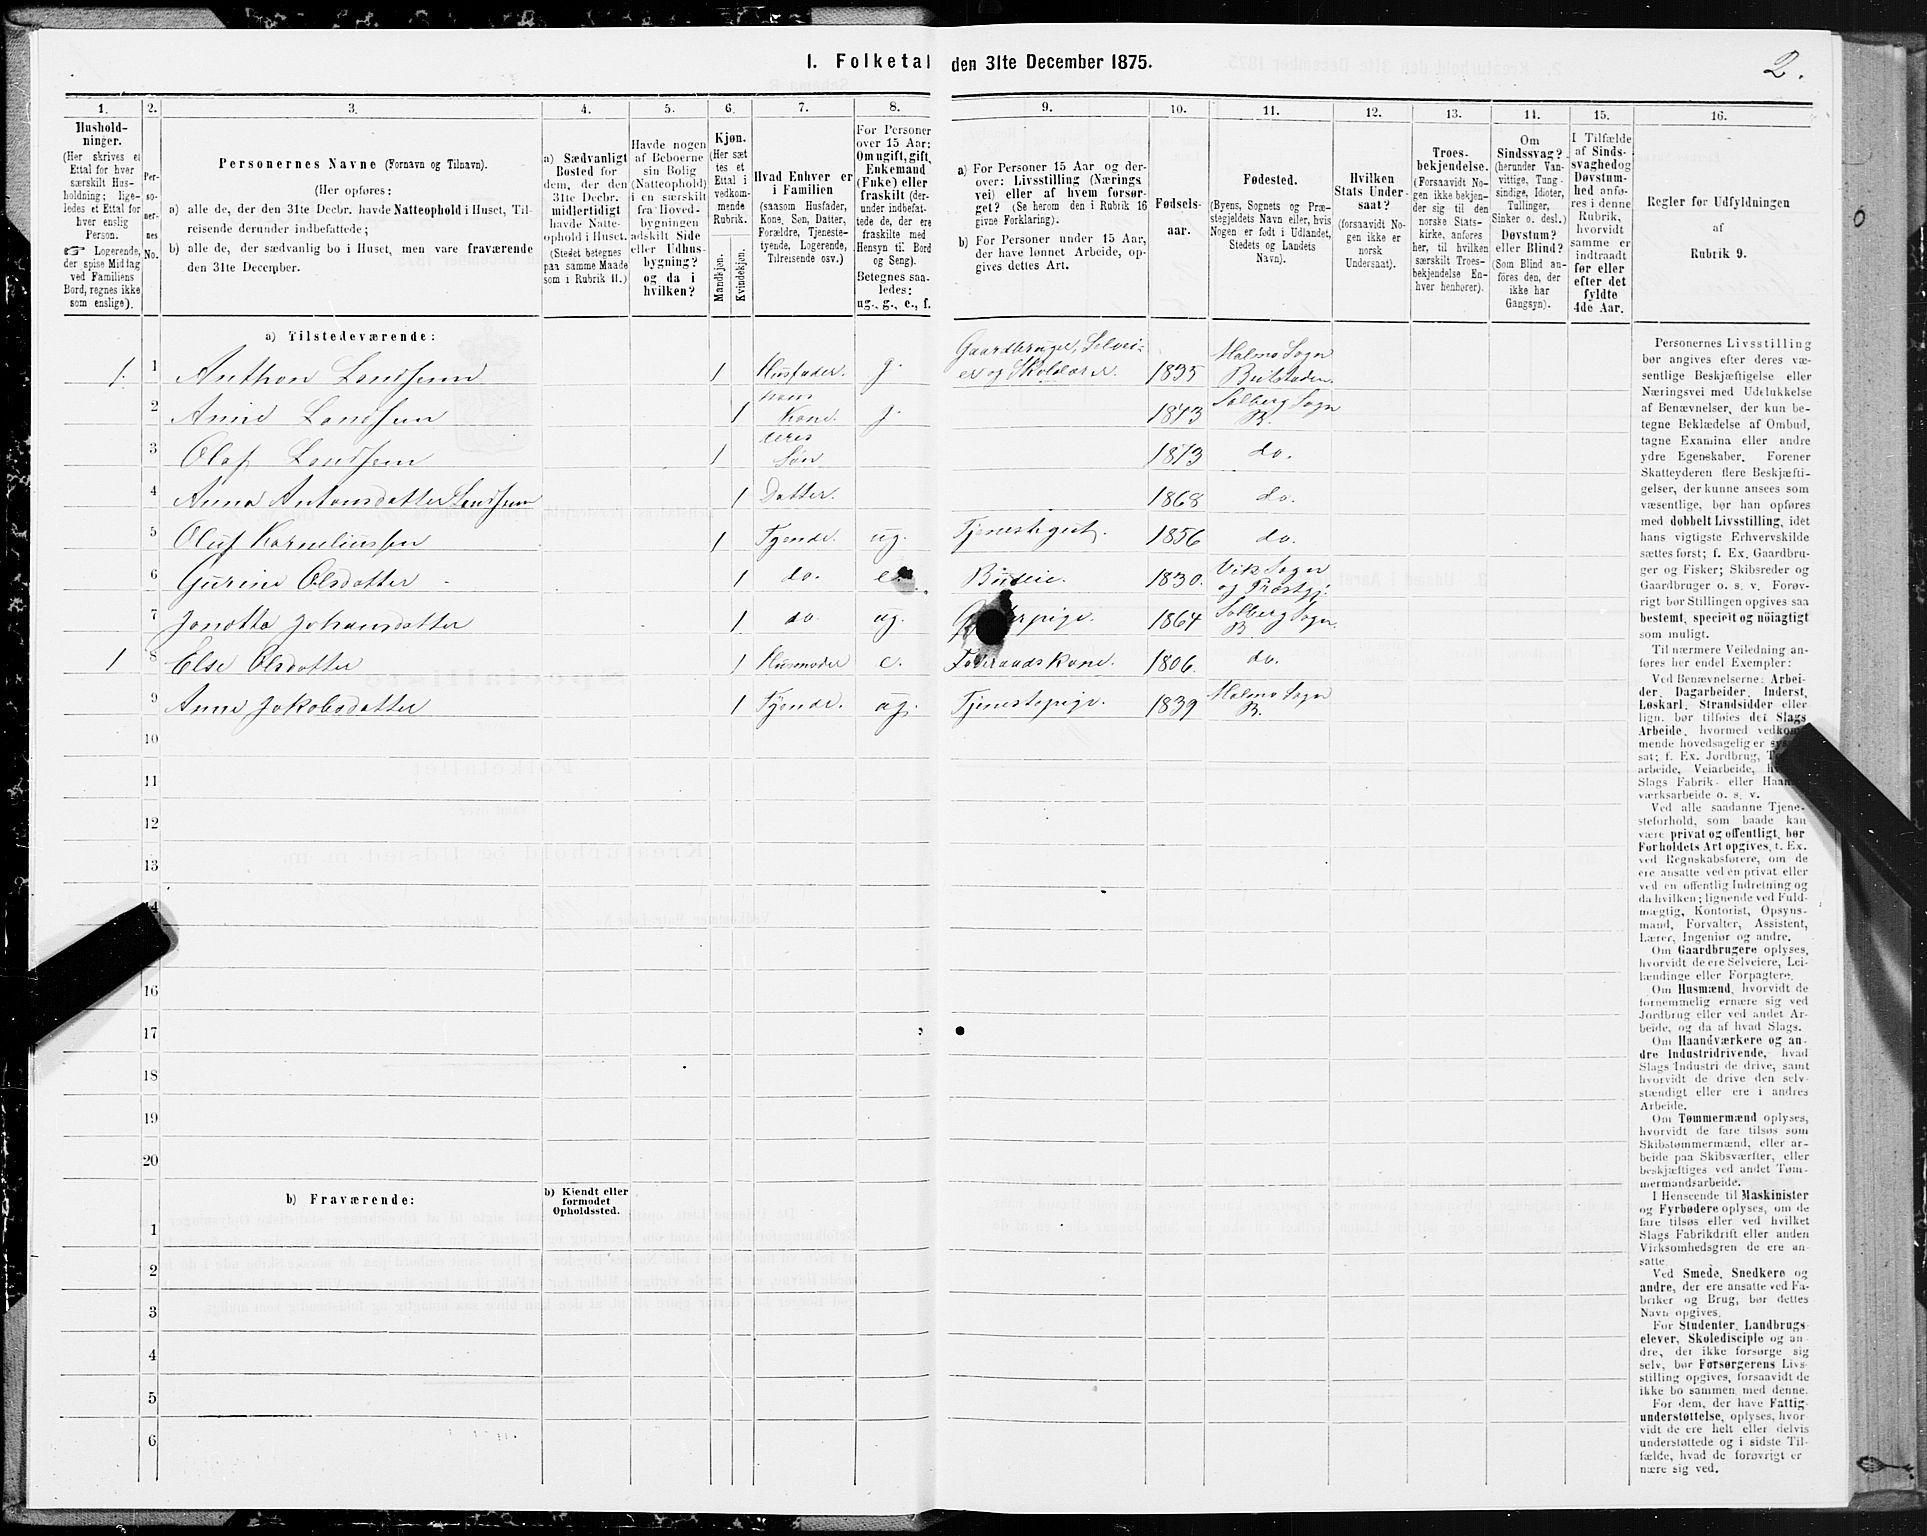 I. Folketal den 31te December 1875.
2.
1. 2. 3. 4. 5. 6. 7. 8. 9. 10. 11. 12. 13. 14. 15. 16.
Hushold-
ninger.
(Her skrives et
Ettal for hver
særskilt Hus-
holdning; lige-
ledes et Ettal for
hver enslig
Person.
☞ Logerende,
der spise Middag
ved Familiens
Bord, regnes ikke
som enslige).
Per-
so-
ner-
nes
No.
Personernes Navne (Fornavn og Tilnavn).
(Her opføres:
a) alle de, der den 31te Decbr. havde Natteophold i Huset, Til-
reisende derunder indbefattede;
b) alle de, der sædvanlig bo i Huset, men vare fraværende
den 31te December.
a) Sædvanligt
Bosted for
dem, der den
31te Decbr.
midlertidigt
havde Natte-
ophold i Huset.
(Stedet betegnes
paa samme Maade
som i Rubrik 11.)
Havde nogen
af Beboerne
sin Bolig
(Natteophold)
i en særskilt
fra Hoved-
bygningen
adskilt Side
eller Udhus-
bygning?
og da i
hvilken?
Kjøn.
(Her sæt-
tes et
Ettal i
vedkom-
mende
Rubrik.
Mandkjøn.
Kvindekjøn.
Hvad Enhver er
i Familien
(saasom Husfader,
Kone, Søn, Datter,
Forældre, Tjeneste-
tyende, Logerende,
Tilreisende osv.)
For Personer
over 15 Aar:
Om ugift, gift,
Enkemand
(Enke) eller
fraskilt (der-
under indbefat-
tede de, der ere
fraskilte med
Hensyn til Bord
og Seng).
Betegnes saa-
ledes:
ug., g., e., f.
a) For Personer 15 Aar og der-
over: Livsstilling (Nærings-
vei) eller af hvem forsør-
get? (Se herom den i Rubrik 16
givne Forklaring).
b) For Personer under 15 Aar,
der have lønnet Arbeide, op-
gives dettes Art.
Fødsels-
aar.
Fødested.
(Byens, Sognets og Præ-
stegjeldets Navn eller, hvis
Nogen er født i Udlandet,
Stedets og Landets
Navn).
Hvilken
Stats Under-
saat?
(forsaavidt No-
gen ikke er
norsk
Undersaat).
Troes-
bekjendelse.
(Forsaavidt No-
gen ikke bekjen-
der sig til den
norske Stats-
kirke, anføres
her, til hvilken
særskilt Troes-
bekjendelse En-
hver henhører).
Om
Sindssvag?
(herunder Van-
vittige, Tung-
sindige, Idioter,
Tullinger,
Sinker o. desl.)
Døvstum?
eller Blind?
(Som Blind an-
føres den, der
ikke har
Gangsyn).
I Tilfælde
af Sinds-
svaghed og
Døvstum-
hed anfø-
res i denne
Rubrik,
hvorvidt
samme er
indtraadt
før eller
efter det
fyldte
4de Aar.
Regler for Udfyldningen
af
Rubrik 9.
a) Tilstedeværende:
1 1 Anthon Landsem 1 Husfader. g. Gaardbruger, Selvei-
er og Skolelærer. 1835 Malmo Sogn
Beitstaden.
2 Anne Landsem 1 hans
Kone g. 1843 Solberg Sogn
B.
3 Olaf Landsem 1 deres
Søn 1873 do.
4 Anna Antonsdatter Landsem 1 Datter. 1868 do.
5 Oluf Korneliussen 1 Tyende. ug. Tjenestegut. 1856 do.
6 Gurine Olsdatter 1 do. e. Budeie. 1830. Vik Sogn
og Præstgj:
7 Jonetta Johansdatter 1 do. ug. 1864 Solberg Sogn.
B.
1 8 Else Olsdatter 1 Husmoder e. Føderaadskone. 1806. do.
9 Anne Jakobsdatter 1 Tyende. ug. Tjenestepige. 1839 Malmo Sogn
B.
10
11
12
13
14
16
17
18
19
20
b) Fraværende:
b) Kjendt eller
formodet
Opholdssted.
1
2
3
4
5
6
Personernes Livsstilling
bør angives efter deres væ-
sentlige Beskjæftigelse eller
Næringsvei med Udelukkelse
af Benævnelser, der kun be-
tegne Beklædelse af Ombud,
tagne Examina eller andre
ydre Egenskaber. Forener
Skatteyderen flere Beskjæfti-
gelser, der kunne ansees som
væsentlige, bør han opføres
med dobbelt Livsstilling, idet
hans vigtigste Erhvervskilde
sættes først; f. Ex. Gaardbru-
ger og Fisker; Skibsreder og
Gaardbruger o. s. v. Forøv-
rigt bør Stillingen opgives saa
bestemt, specielt og nøiagtigt
som muligt.
Til nærmere Veiledning an-
føres her endel Exempler:
Ved Benævnelserne: Arbei-
der, Dagarbeider, Inderst,
Løskarl, Strandsidder eller
lign. bør tilføies det Slags
Arbeide, hvormed vedkom-
mende hovedsagelig er
sat; f. Ex. Jordbrug,
arbeide, Veiarbeide,
Slags Fabrik- eller Haand-
værksarbeide o. s. v.
Ved alle saadanne Tjene-
steforhold, som baade kan
være privat og offentligt, bør
Forholdets Art opgives, t. Ex.
ved Regnskabsførere, om de
ere ansatte ved en privat eller
ved en offentlig Indretning og
da hvilken; lignende ved Fuld-
mægtig, Kontorist, Opsyns-
mand, Forvalter, Assistent,
Lærer, Ingeniør og andre.
Om Gaardbrugere oplyses,
hvorvidt de ere Selveiere, Lei-
lændinge eller Forpagtere.
Om Husmænd, hvorvidt de
fornemmelig ernære sig ved
Jordbrug eller ved andet Ar-
beide, og da af hvad Slags.
Om Haandværkere og an-
dre Industridrivende, hvad
Slags Industri de drive, samt
hvorvidt de drive den selv-
stændigt eller ere i andres
Arbeide.
Om Tømmermænd oplyses,
hvorvidt de fare tilsøs som
Skibstømmermænd, eller ar-
beide paa Skibsværfter, eller
beskjæftiges ved andet Tøm-
mermandsarbeide.
I Henseende til Maskinister
og Fyrbødere oplyses, om de
fare tilsøs eller ved hvilket
Slags Fabrikdrift eller anden
Virksomhedsgren de ere an-
satte.
Ved Smede, Snedkere og
andre, der ere ansatte ved Fa-
briker og Brug, bør dettes
Navn opgives.
For Studenter, Landbrugs-
elever, Skoledisciple og an-
dre, der ikke forsørge sig
selv, bør Forsørgerens Livs-
stilling opgives, forsaavidt de
ikke bo sammen med denne.
For dem, der have Fattig-
understøttelse, oplyses, hvor-
vidt de ere helt eller delvis
understøttede og i sidste Til-
fælde, hvad de forøvrigt er-
nære sig ved.